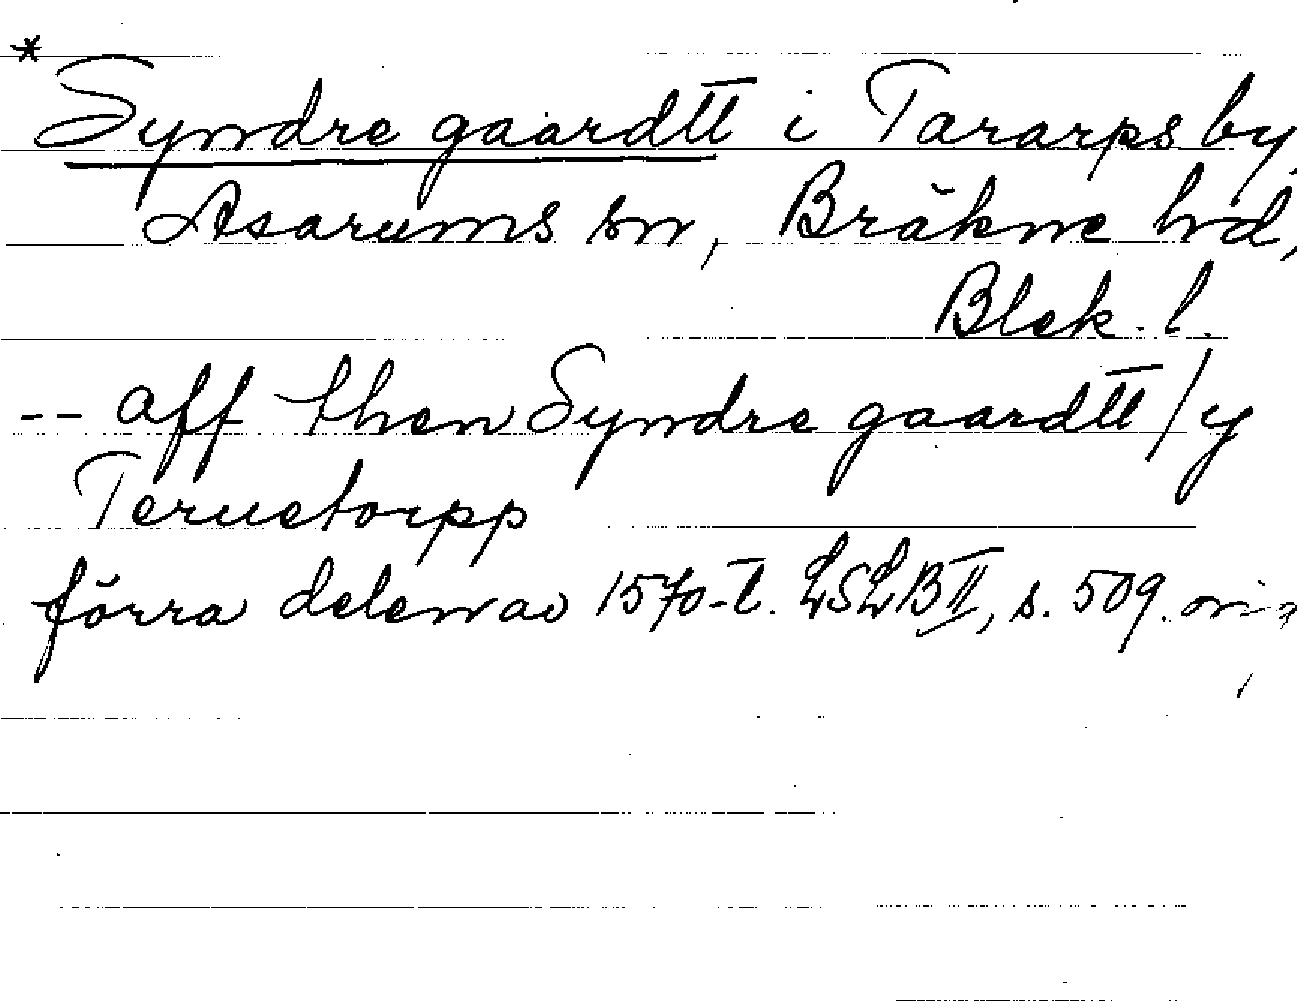 * Syndre gaardtt i Tararps by,
Asarums sn, Bräkne hd,
Blek. l.
-- aff then Syndre gaardtt / y
Teruetorpp
förra delen av 1570-t. LSLB II, s. 509. or